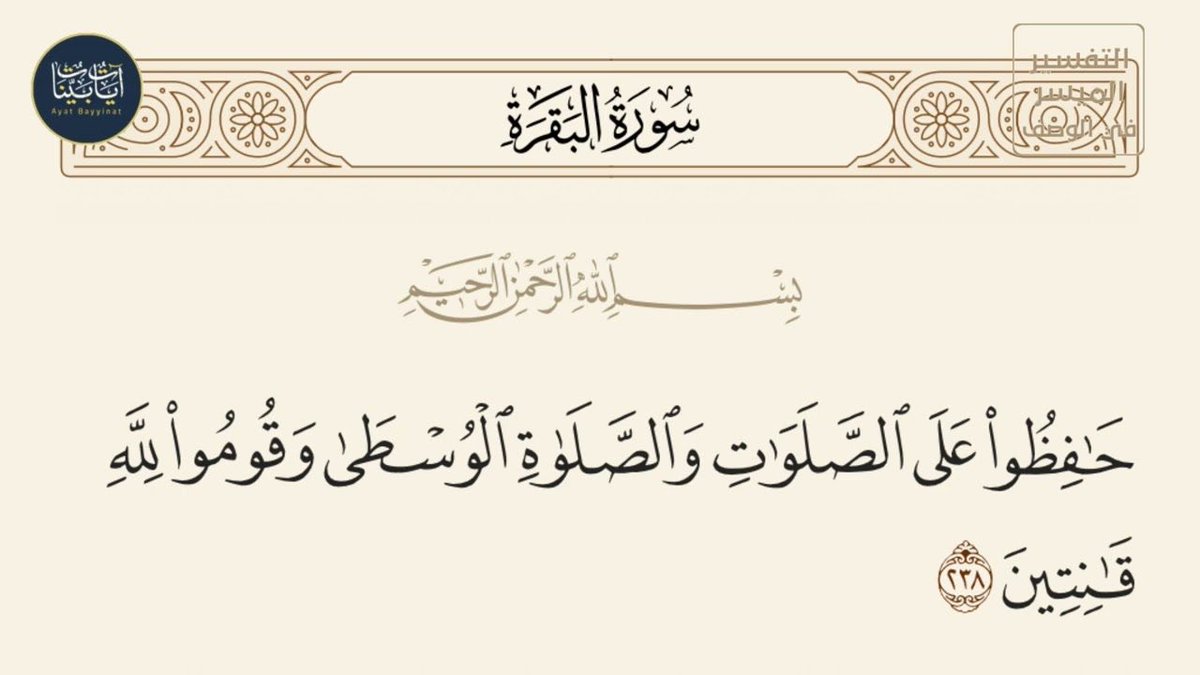 آيات بينات
Ayat Bayyinat
التفسير
الميسر
في الوصف
سُورَةُ البَقَرَةِ
بِسْمِ ٱللَّهِ ٱلرَّحْمَٰنِ ٱلرَّحِيمِ
حَٰفِظُوا۟ عَلَى ٱلصَّلَوَٰتِ وَٱلصَّلَوٰةِ ٱلْوُسْطَىٰ وَقُومُوا۟ لِلَّهِ
قَٰنِتِينَ ٢٣٨